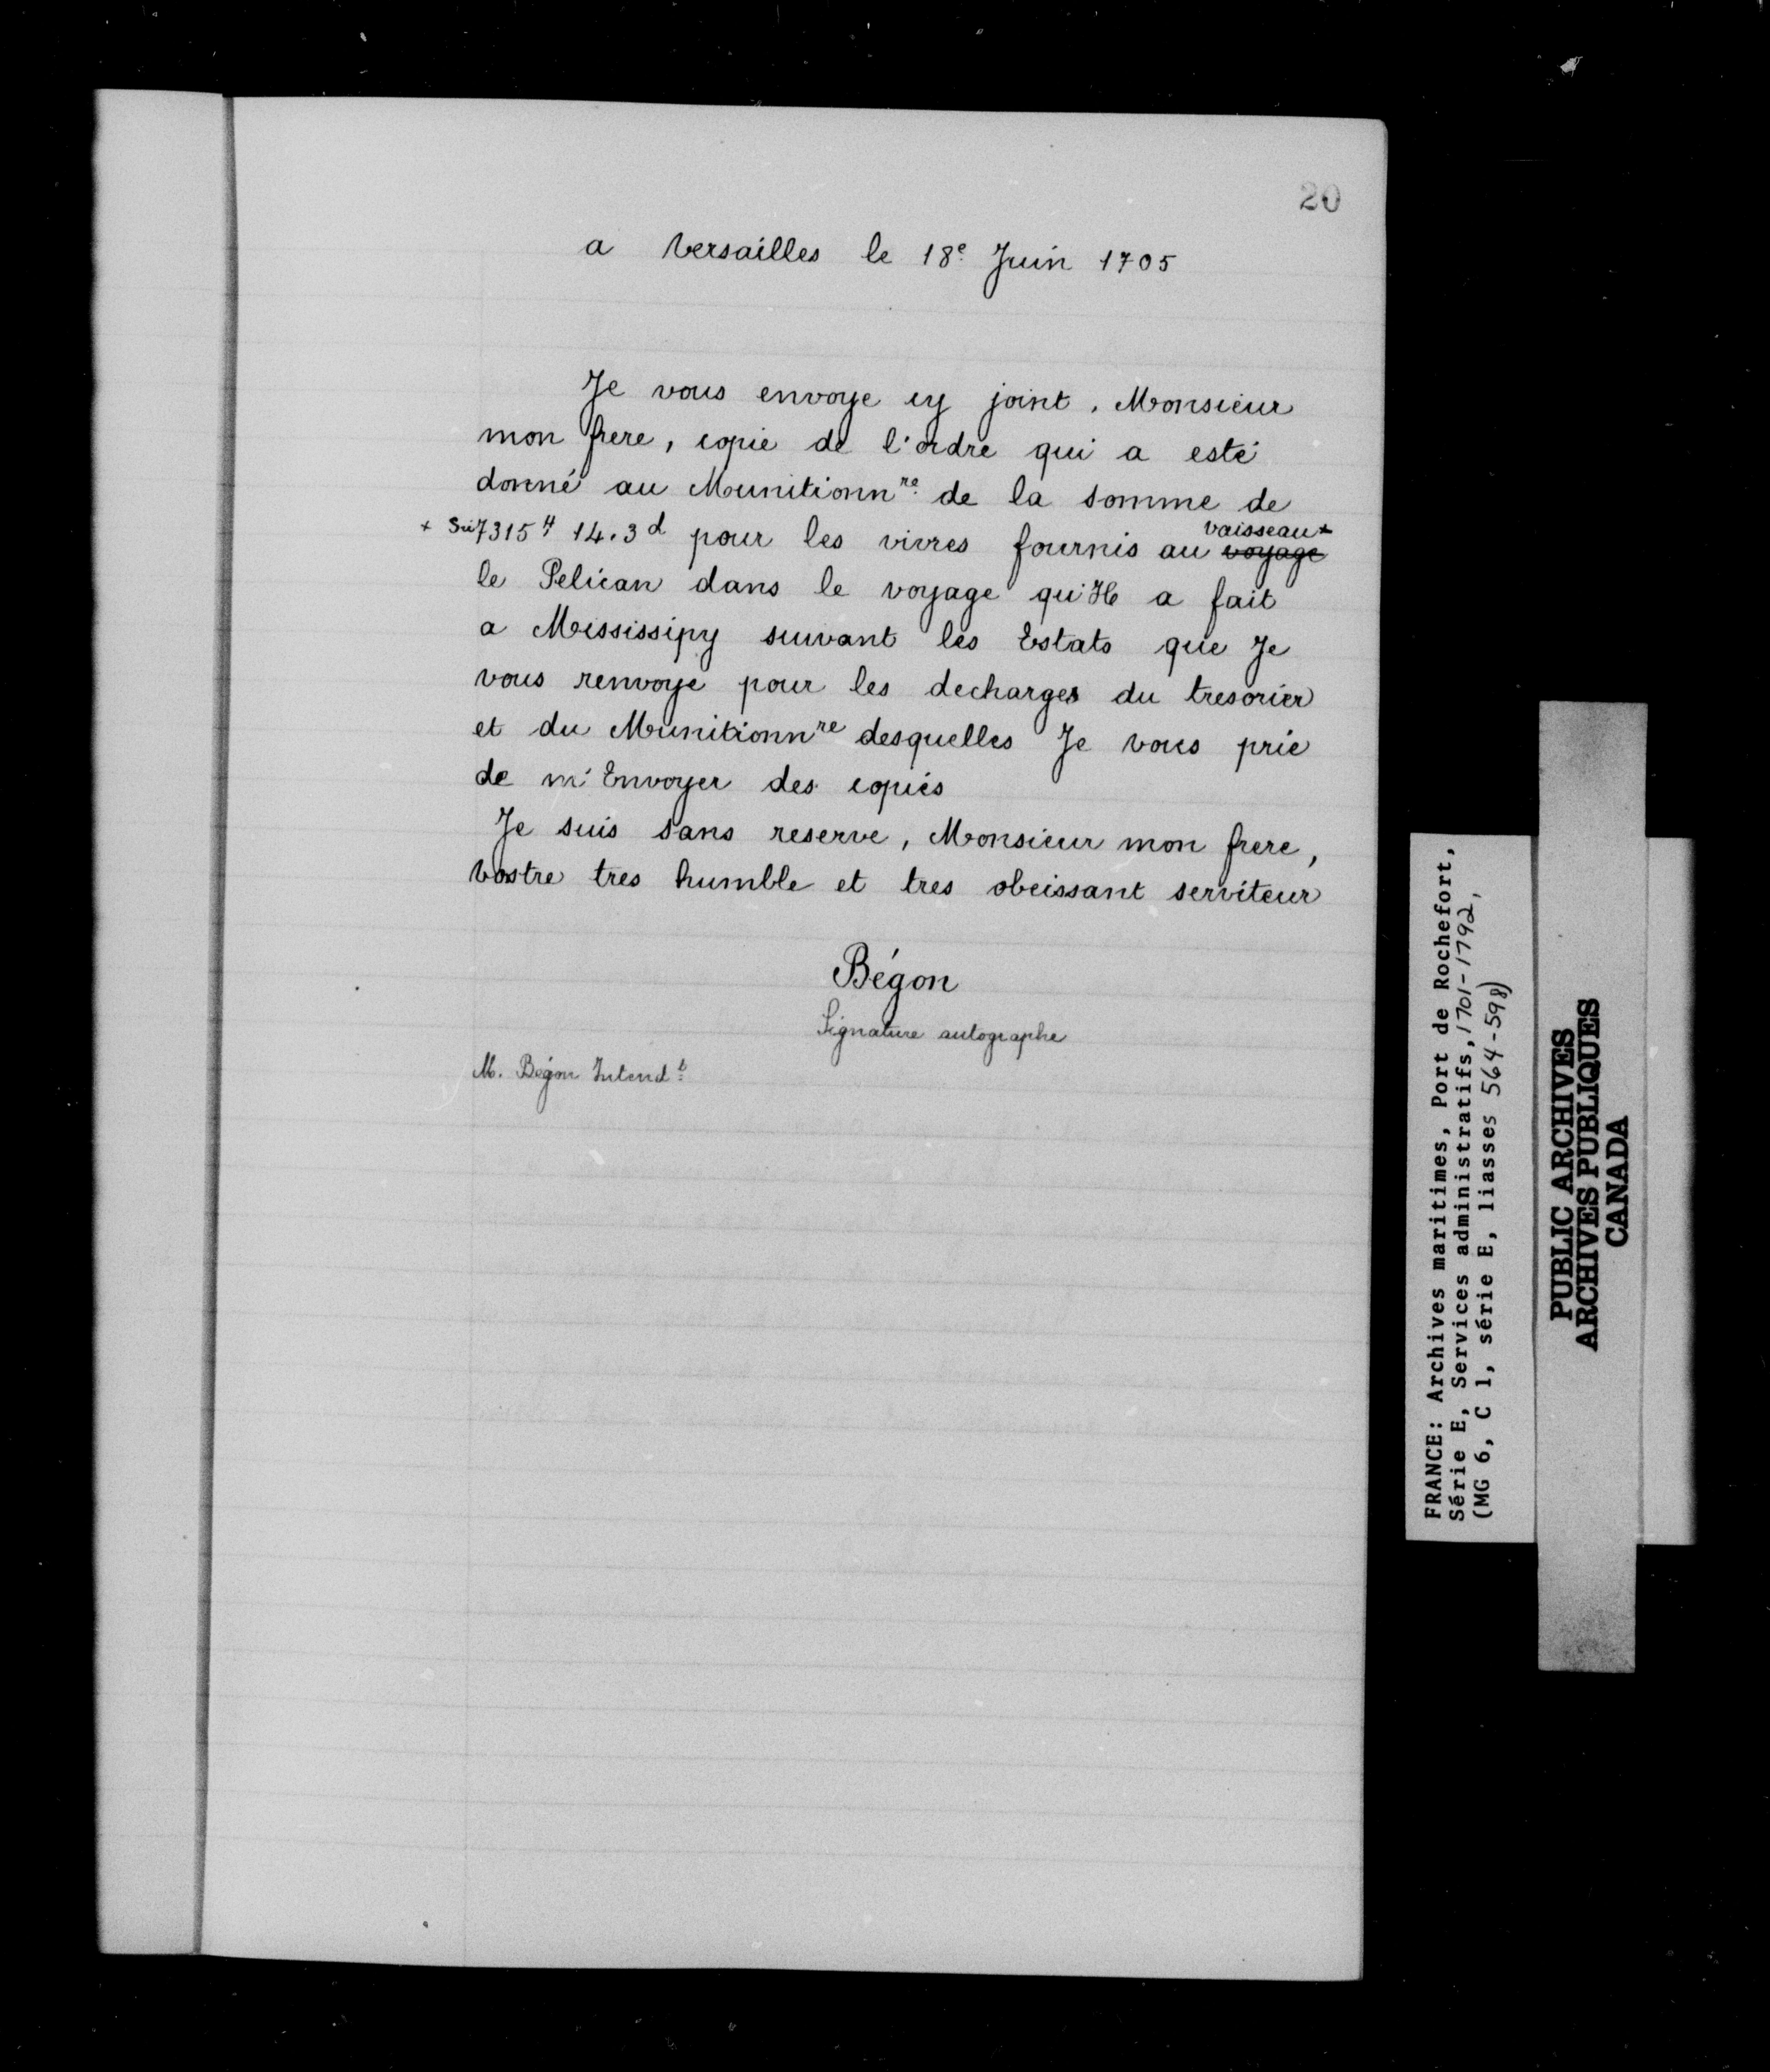 20
a Versailles le 18e Juin 1705
Je vous envoye cy joint, Monsieur
mon frere, copie de l'ordre qui a esté
donné au Munitionnre de la somme de
+ Sic 7315# 14.3d pour les vivres fournis au ~~voyage~~ vaisseau +
le Pelican dans le voyage qu'Il a fait
a Mississipy suivant les Estats que Je
vous renvoye pour les decharges du tresorier
et du Munitionnre desquelles Je vous prie
de m'Envoyer des copies
Je suis sans reserve, Monsieur mon frere,
vostre tres humble et tres obeissant serviteur
Bégon
Signature autographe
M. Bégon Intendt
FRANCE: Archives maritimes, Port de Rochefort,
Série E, Services administratifs, 1701-1792,
(MG 6, C 1, série E, liasses 564-598)
PUBLIC ARCHIVES
ARCHIVES PUBLIQUES
CANADA